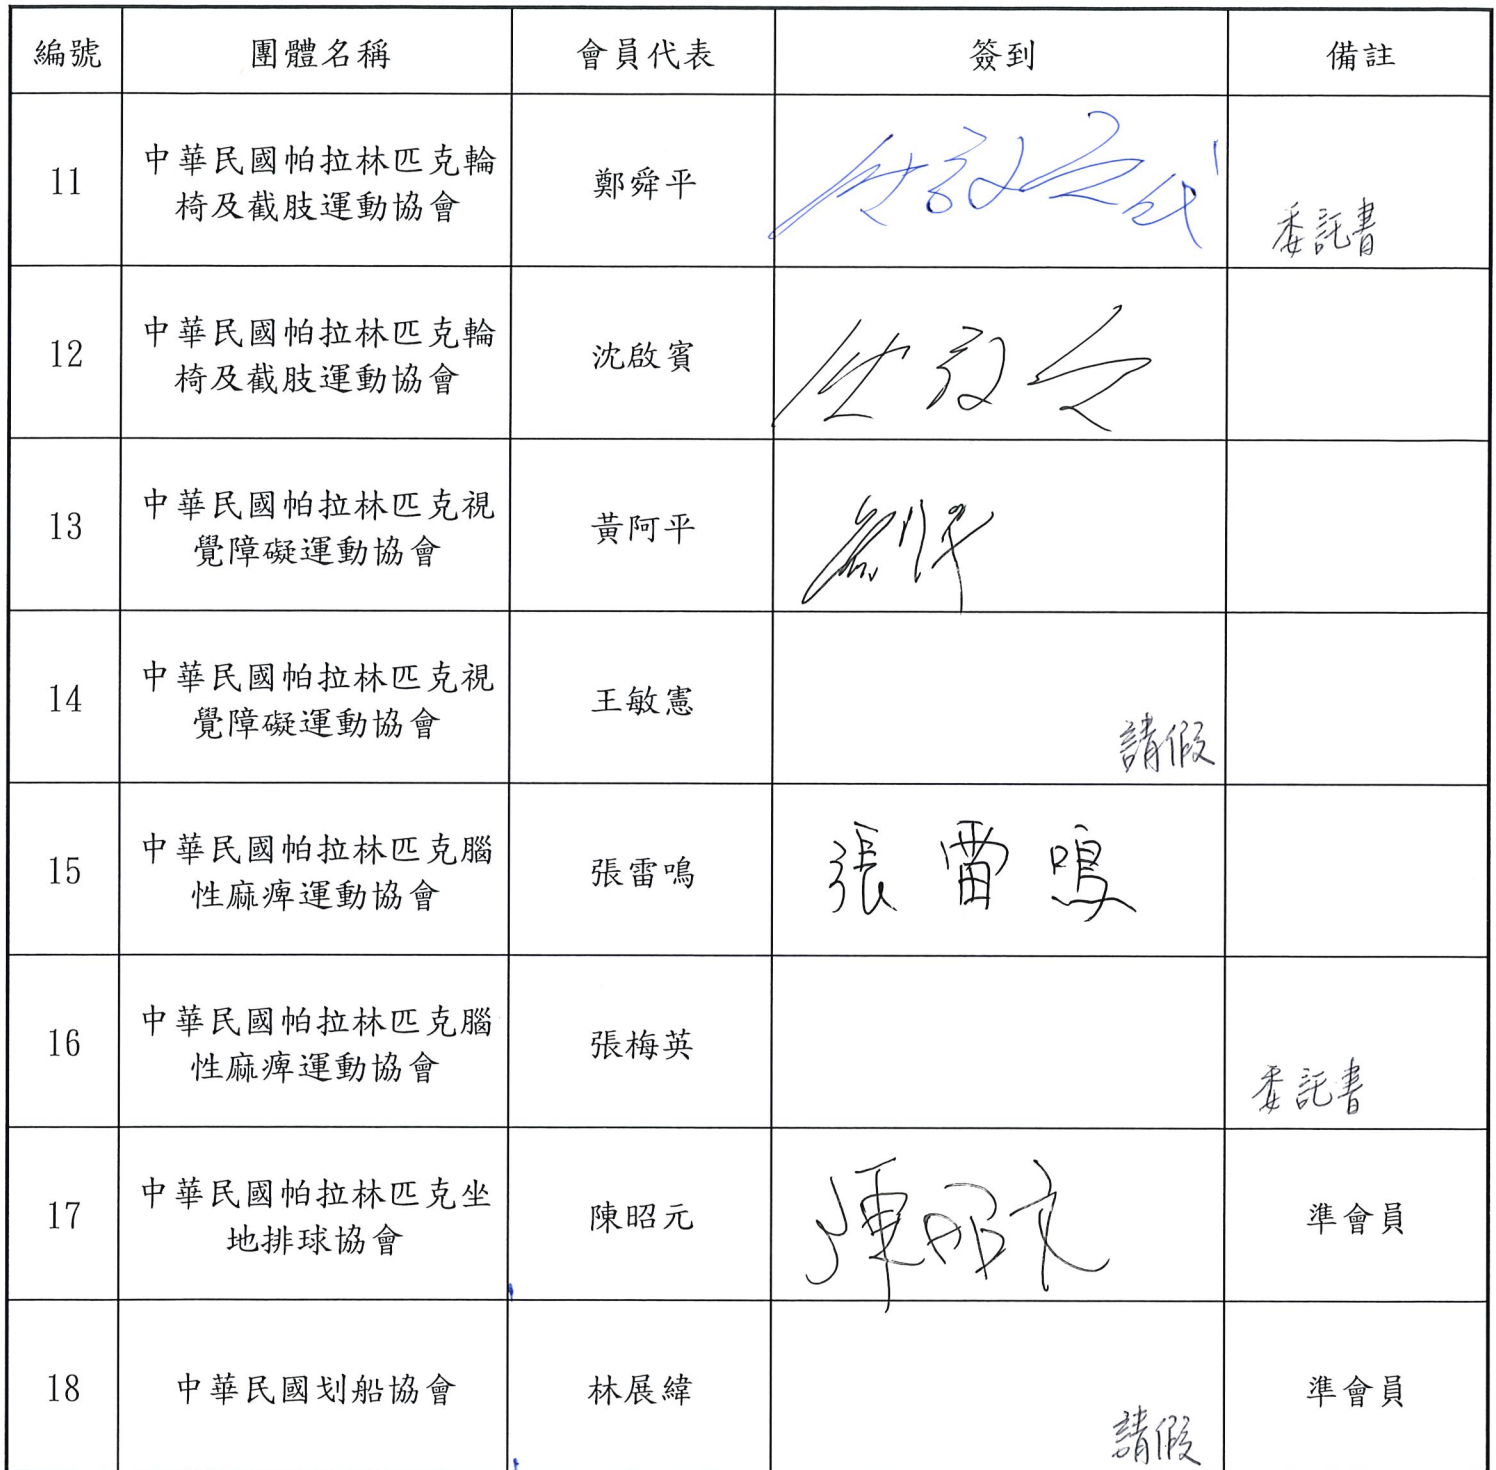 編號 團體名稱 會員代表 簽到 備註
11 中華民國帕拉林匹克輪
椅及截肢運動協會 鄭舜平
委託書
12 中華民國帕拉林匹克輪
椅及截肢運動協會 沈啟賓
13 中華民國帕拉林匹克視
覺障礙運動協會 黃阿平
14 中華民國帕拉林匹克視
覺障礙運動協會 王敏憲
請假
15 中華民國帕拉林匹克腦
性麻痺運動協會 張雷鳴 張雷鳴
16 中華民國帕拉林匹克腦
性麻痺運動協會 張梅英
委託書
17 中華民國帕拉林匹克坐
地排球協會 陳昭元 陳昭元 準會員
18 中華民國划船協會 林展緯 準會員
請假